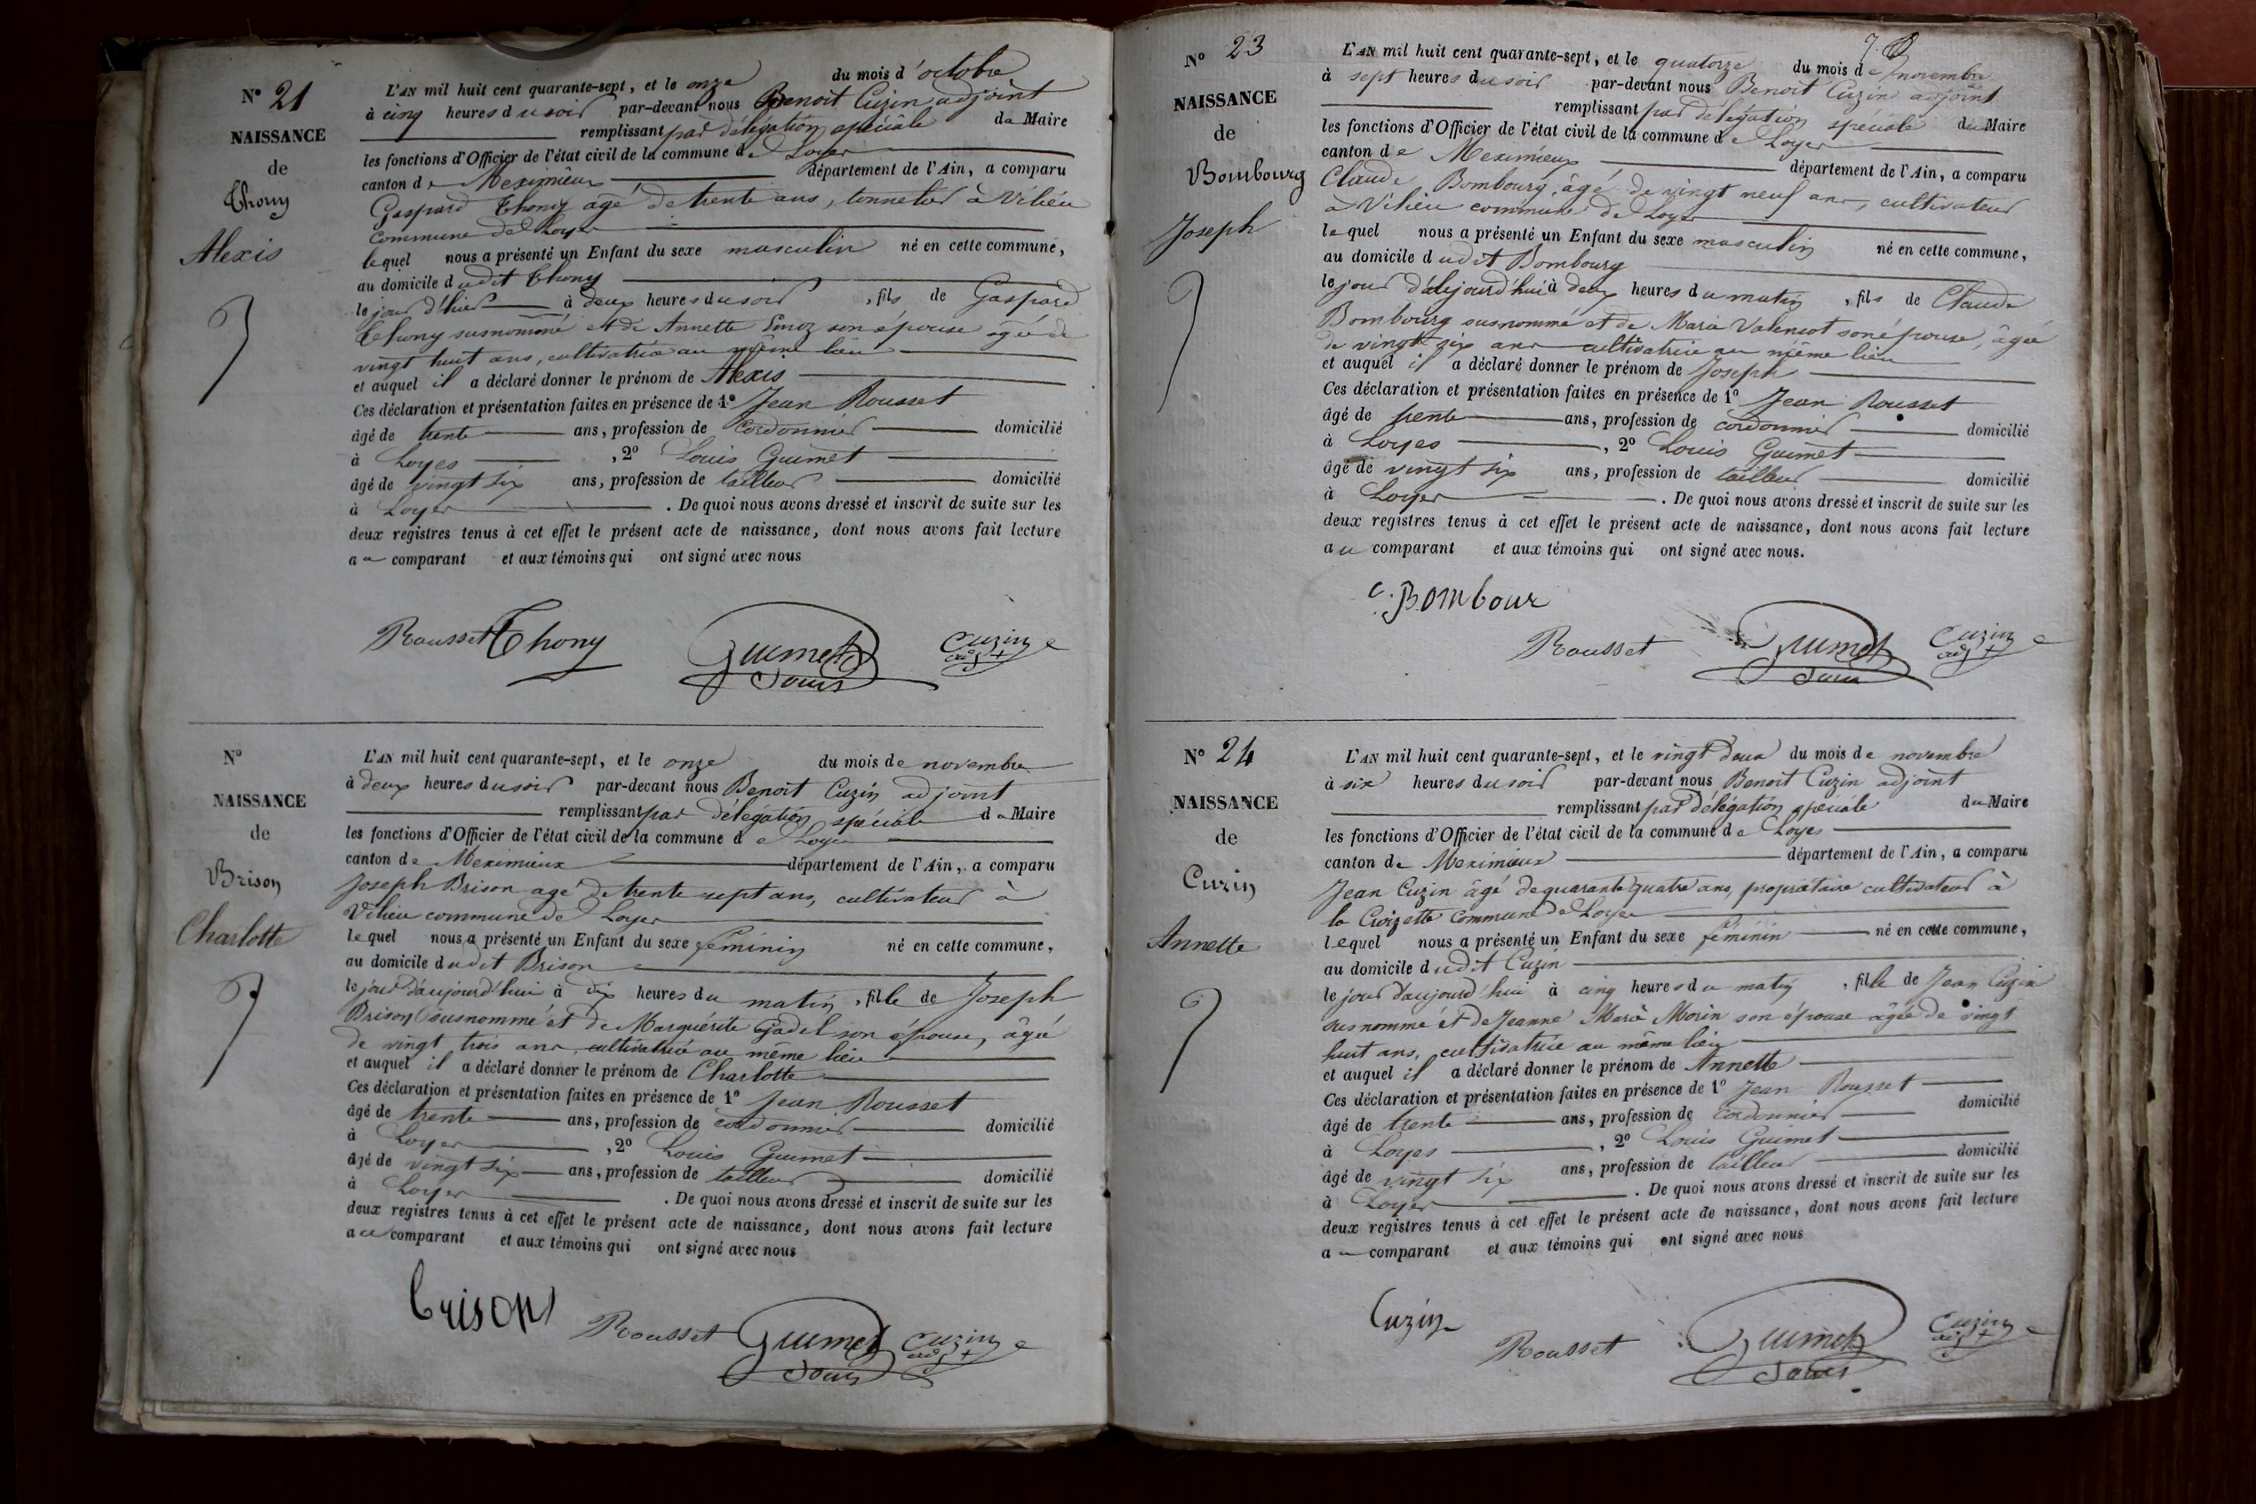 N° 21
NAISSANCE
de
Thony
Alexis
L'AN mil huit cent quarante-sept, et le onze du mois d'octobre
à cinq heures du soir par-devant nous Benoit Cuzin adjoint
remplissant par délégation spéciale du Maire
les fonctions d'Officier de l'état civil de la commune de Loyes
canton de Meximieux département de l'Ain, a comparu
Gaspard Thony agé de trente ans, tonnelier à Vilieu
commune de Loyes
lequel nous a présenté un Enfant du sexe masculin né en cette commune,
au domicile dudit Thony
le jour d'hier à deux heures du soir, fils de Gaspard
Thony susnommé et de Annette son épouse âgée de
vingt huit ans, cultivatrice au même lieu
et auquel il a déclaré donner le prénom de Alexis
Ces déclaration et présentation faites en présence de 1° Jean Rousset
âgé de trente ans, profession de cordonnier domicilié
à Loyes, 2° Louis Guimet
âgé de vingt six ans, profession de tailleur domicilié
à Loyes. De quoi nous avons dressé et inscrit de suite sur les
deux registres tenus à cet effet le présent acte de naissance, dont nous avons fait lecture
au comparant et aux témoins qui ont signé avec nous
Rousset Thony Guimet Louis Cuzin adjt
N°
NAISSANCE
de
Brison
Charlotte
L'AN mil huit cent quarante-sept, et le onze du mois de novembre
à deux heures du soir par-devant nous Benoit Cuzin adjoint
remplissant par délégation spéciale du Maire
les fonctions d'Officier de l'état civil de la commune de Loyes
canton de Meximieux département de l'Ain, a comparu
Joseph Brison agé de trente sept ans, cultivateur à
Vilieu commune de Loyes
lequel nous a présenté un Enfant du sexe féminin né en cette commune,
au domicile dudit Brison
le jour d'aujourd'hui à dix heures du matin, fille de Joseph
Brison susnommé et de Marguérite Gadel son épouse, âgée
de vingt trois ans, cultivatrice au même lieu
et auquel il a déclaré donner le prénom de Charlotte
Ces déclaration et présentation faites en présence de 1° Jean Rousset
âgé de trente ans, profession de cordonnier domicilié
à Loyes, 2° Louis Guimet
âgé de vingt six ans, profession de tailleur domicilié
à Loyes. De quoi nous avons dressé et inscrit de suite sur les
deux registres tenus à cet effet le présent acte de naissance, dont nous avons fait lecture
au comparant et aux témoins qui ont signé avec nous
brison Rousset Guimet Louis Cuzin adjt
N° 23
NAISSANCE
de
Bombourg
Joseph
L'AN mil huit cent quarante-sept, et le quatorze du mois de novembre
à sept heures du soir par-devant nous Benoit Cuzin adjoint
remplissant par délégation spéciale du Maire
les fonctions d'Officier de l'état civil de la commune de Loyes
canton de Meximieux département de l'Ain, a comparu
Claude Bombourg, âgé de vingt neuf ans, cultivateur
à Vilieu commune de Loyes
lequel nous a présenté un Enfant du sexe masculin né en cette commune,
au domicile dudit Bombourg
le jour d'aujourd'hui à deux heures du matin, fils de Claude
Bombourg susnommé et de Marie Valencot son épouse, âgée
de vingt six ans cultivatrice au même lieu
et auquel il a déclaré donner le prénom de Joseph
Ces déclaration et présentation faites en présence de 1° Jean Rousset
âgé de trente ans, profession de cordonnier domicilié
à Loyes, 2° Louis Guimet
âgé de vingt six ans, profession de tailleur domicilié
à Loyes. De quoi nous avons dressé et inscrit de suite sur les
deux registres tenus à cet effet le présent acte de naissance, dont nous avons fait lecture
au comparant et aux témoins qui ont signé avec nous.
C. Bombour
Rousset Guimet Louis Cuzin adjt
N° 24
NAISSANCE
de
Cuzin
Annette
L'AN mil huit cent quarante-sept, et le vingt deux du mois de novembre
à six heures du soir par-devant nous Benoit Cuzin adjoint
remplissant par délégation spéciale du Maire
les fonctions d'Officier de l'état civil de la commune de Loyes
canton de Meximieux département de l'Ain, a comparu
Jean Cuzin âgé de quarante quatre ans, propriétaire cultivateur à
la Croizette commune de Loyes
lequel nous a présenté un Enfant du sexe féminin né en cette commune,
au domicile dudit Cuzin
le jour d'aujourd'hui à cinq heures du matin, fille de Jean Cuzin
susnommé et de Jeanne Marie Morin son épouse âgée de vingt
huit ans, cultivatrice au même lieu
et auquel il a déclaré donner le prénom de Annette
Ces déclaration et présentation faites en présence de 1° Jean Rousset
âgé de trente ans, profession de cordonnier domicilié
à Loyes, 2° Louis Guimet
âgé de vingt six ans, profession de tailleur domicilié
à Loyes. De quoi nous avons dressé et inscrit de suite sur les
deux registres tenus à cet effet le présent acte de naissance, dont nous avons fait lecture
au comparant et aux témoins qui ont signé avec nous
Cuzin
Rousset Guimet Louis Cuzin adjt